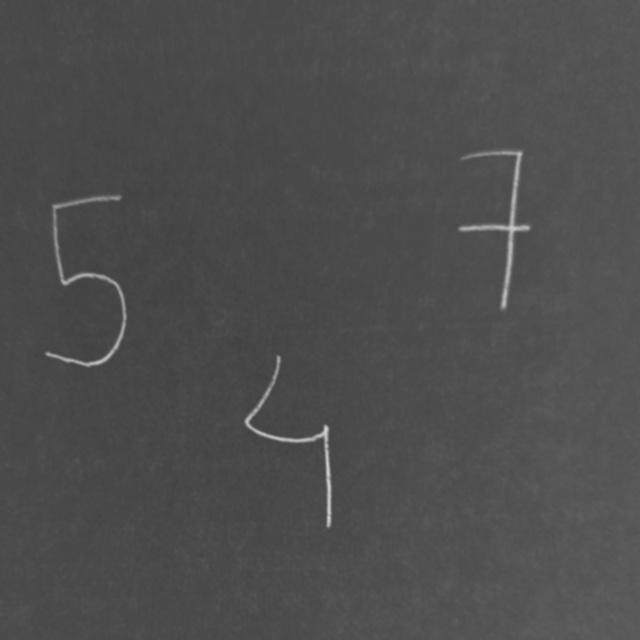 5 7
4